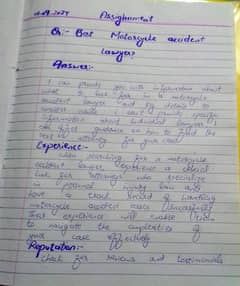 Assignment
Q:- Best Motorcycle accident
lawyer?
Answer:-
I can provide you with information about
what to look for in a motorcycle
accident lawyer and
I can't provide specific
information about individual lawyers, I
can offer guidance on how to find the
best for your case
Experience:-
When searching for a motorcycle
accident lawyer, experience is
look for attorneys who specialize
in personal injury law and
have a track record of handling
motorcycle accident cases
experience will enable them
to navigate the complexities of
your case effectively
Reputation:-
Check for reviews and testimonials